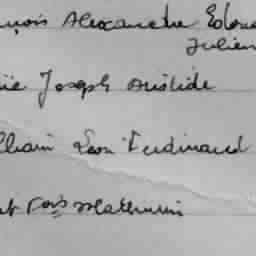 nçois Alexandre Edoua
Julien
rie Joseph Aristide
lliam Leon Ferdinand
st Fois Mathurin